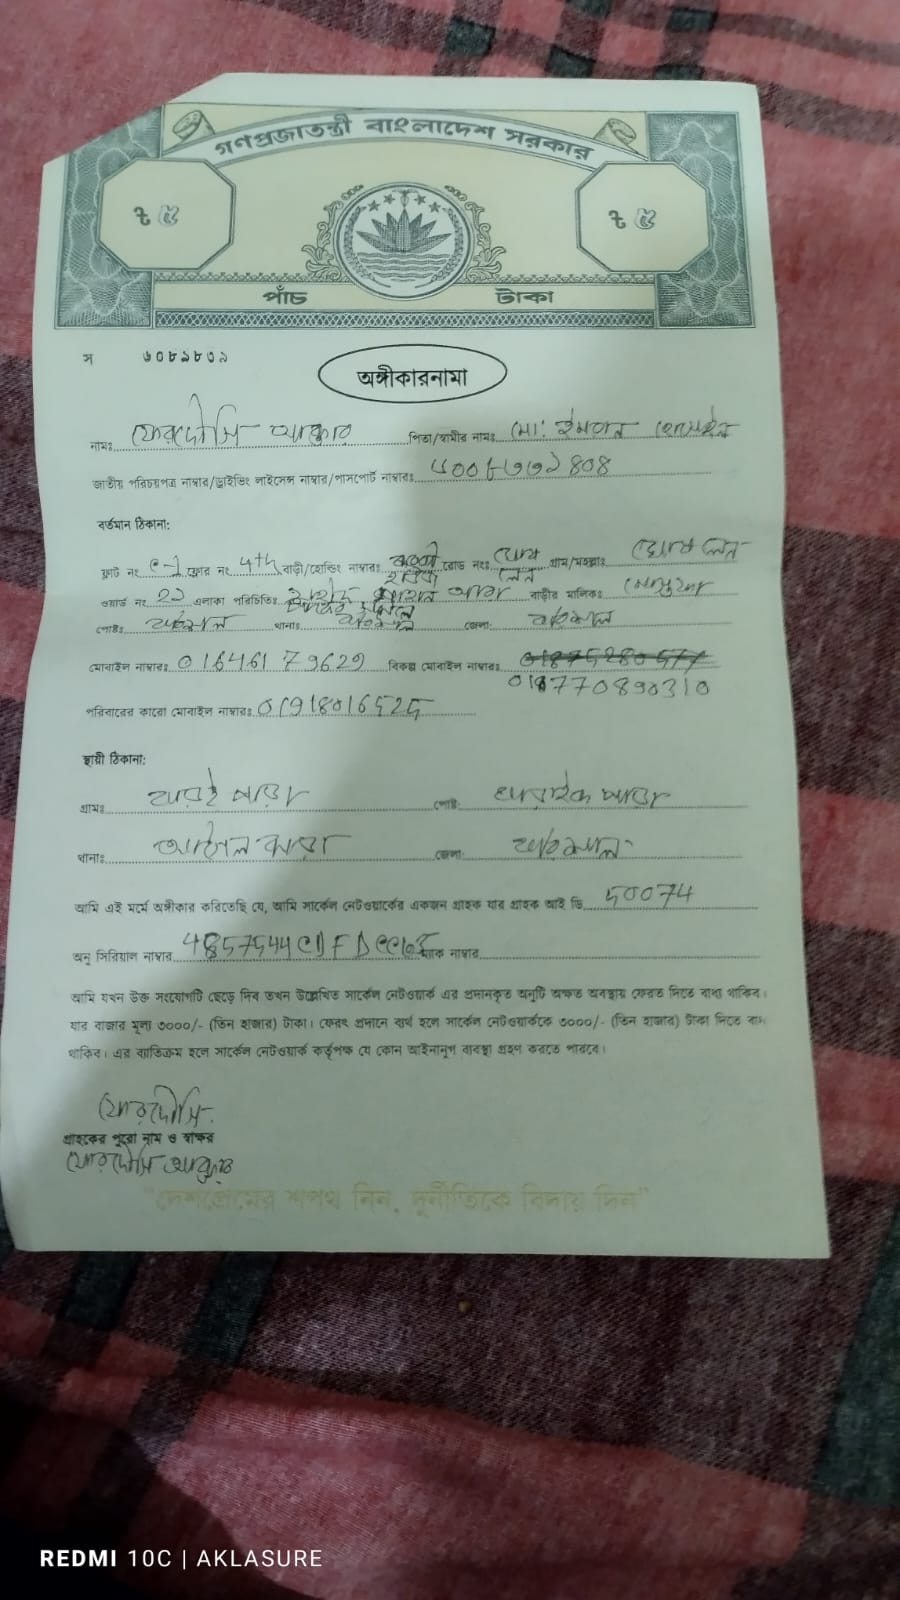 গণপ্রজাতন্ত্রী বাংলাদেশ সরকার
৳ ৫ ৳ ৫
পাঁচ টাকা
স ৬০৮৯৮৩৯
অঙ্গীকারনামা
নামঃ ফেরদৌসি আক্তার পিতা/স্বামীর নামঃ মো: ইমরান হোসেইন
জাতীয় পরিচয়পত্র নাম্বার/ড্রাইভিং লাইসেন্স নাম্বার/পাসপোর্ট নাম্বারঃ
বর্তমান ঠিকানা:
ফ্লাট নং C-1 ফ্লোর নং 4th বাড়ী/হোল্ডিং নাম্বারঃ রোড নংঃ লেন গ্রাম/মহল্লাঃ লেন
ওয়ার্ড নং 21 এলাকা পরিচিতিঃ বাড়ীর মালিকঃ
পোষ্টঃ বরিশাল থানাঃ বরিশাল জেলা: বরিশাল
মোবাইল নাম্বারঃ 01646179629 বিকল্প মোবাইল নাম্বারঃ
018770890310
পরিবারের কারো মোবাইল নাম্বারঃ
স্থায়ী ঠিকানা:
গ্রামঃ পোষ্ট:
থানাঃ জেলা: বরিশাল
আমি এই মর্মে অঙ্গীকার করিতেছি যে, আমি সার্কেল নেটওয়ার্কের একজন গ্রাহক যার গ্রাহক আই ডি 50074
অনু সিরিয়াল নাম্বার ম্যাক নাম্বার
আমি যখন উক্ত সংযোগটি ছেড়ে দিব তখন উল্লেখিত সার্কেল নেটওয়ার্ক এর প্রদানকৃত অনুটি অক্ষত অবস্থায় ফেরত দিতে বাধ্য থাকিব।
যার বাজার মূল্য ৩০০০/- (তিন হাজার) টাকা। ফেরৎ প্রদানে ব্যর্থ হলে সার্কেল নেটওয়ার্ককে ৩০০০/- (তিন হাজার) টাকা দিতে বাধ্য
থাকিব। এর ব্যতিক্রম হলে সার্কেল নেটওয়ার্ক কর্তৃপক্ষ যে কোন আইনানুগ ব্যবস্থা গ্রহণ করতে পারবে।
ফেরদৌসি
গ্রাহকের পুরো নাম ও স্বাক্ষর
ফেরদৌসি আক্তার
"দেশপ্রেমের শপথ নিন, দুর্নীতিকে বিদায় দিন"
REDMI 10C | AKLASURE